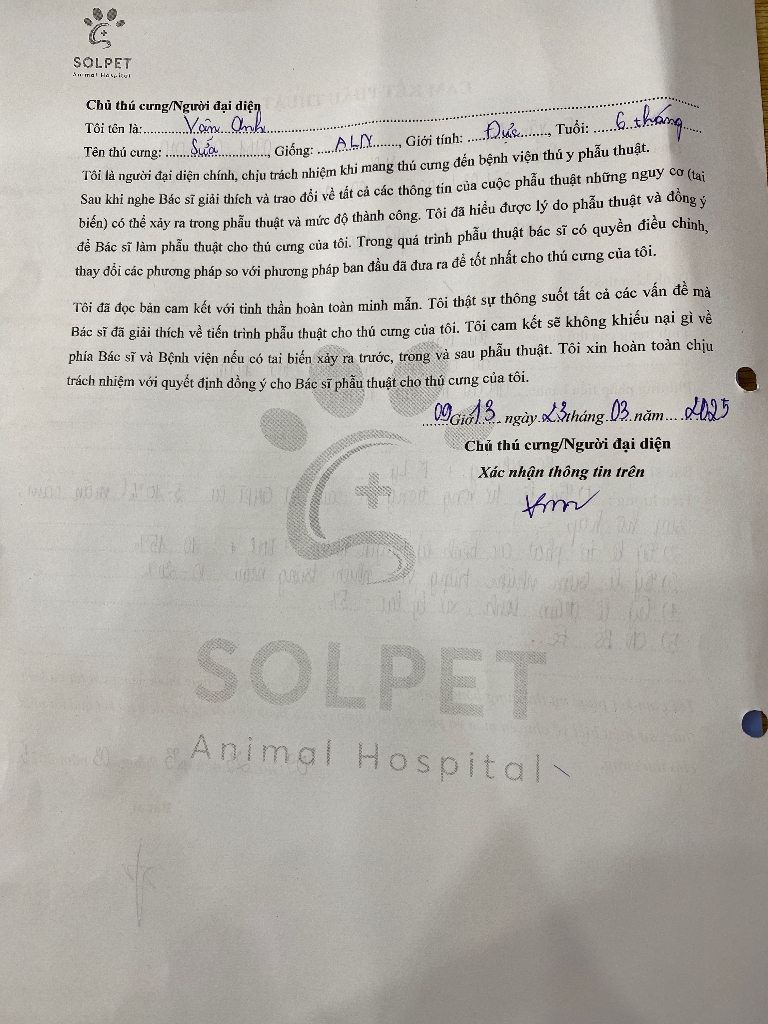 SOLPET
Animal Hospital
Chủ thú cưng/Người đại diện
Tôi tên là: Vân Anh
Tên thú cưng: Sữa, Giống: ALN, Giới tính: Đực, Tuổi: 6 tháng
Tôi là người đại diện chính, chịu trách nhiệm khi mang thú cưng đến bệnh viện thú y phẫu thuật.
Sau khi nghe Bác sĩ giải thích và trao đổi về tất cả các thông tin của cuộc phẫu thuật những nguy cơ (tai
biến) có thể xảy ra trong phẫu thuật và mức độ thành công. Tôi đã hiểu được lý do phẫu thuật và đồng ý
để Bác sĩ làm phẫu thuật cho thú cưng của tôi. Trong quá trình phẫu thuật bác sĩ có quyền điều chỉnh,
thay đổi các phương pháp so với phương pháp ban đầu đã đưa ra để tốt nhất cho thú cưng của tôi.
Tôi đã đọc bản cam kết với tinh thần hoàn toàn minh mẫn. Tôi thật sự thông suốt tất cả các vấn đề mà
Bác sĩ đã giải thích về tiến trình phẫu thuật cho thú cưng của tôi. Tôi cam kết sẽ không khiếu nại gì về
phía Bác sĩ và Bệnh viện nếu có tai biến xảy ra trước, trong và sau phẫu thuật. Tôi xin hoàn toàn chịu
trách nhiệm với quyết định đồng ý cho Bác sĩ phẫu thuật cho thú cưng của tôi.
09 Giờ 13 ngày 23 tháng 03 năm 2025
Chủ thú cưng/Người đại diện
Xác nhận thông tin trên
SOLPET
Animal Hospital